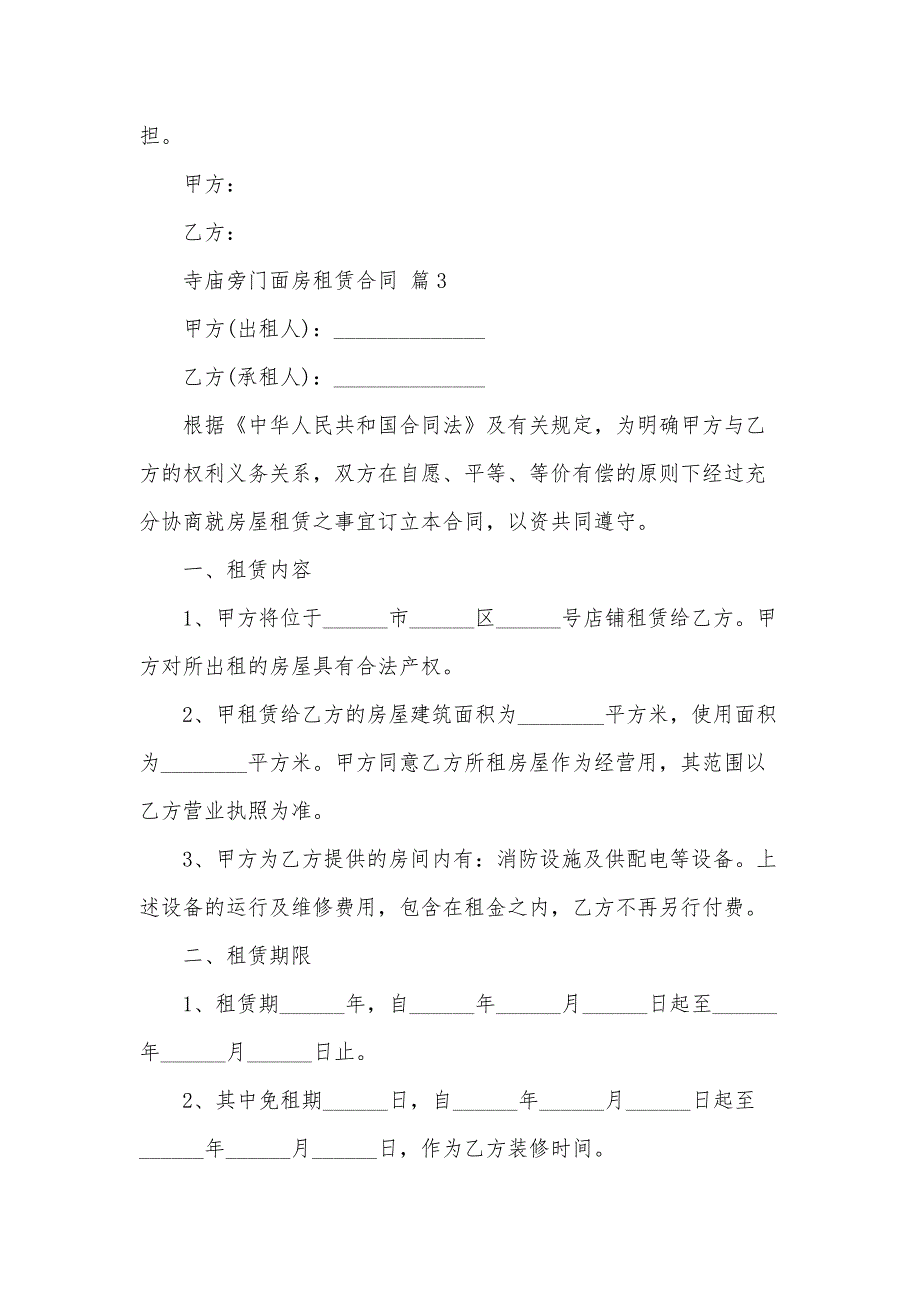 担。
甲方：
乙方：
寺庙旁门面房租赁合同 篇3
甲方(出租人)：______________
乙方(承租人)：______________
根据《中华人民共和国合同法》及有关规定，为明确甲方与乙
方的权利义务关系，双方在自愿、平等、等价有偿的原则下经过充
分协商就房屋租赁之事宜订立本合同，以资共同遵守。
一、租赁内容
1、甲方将位于______市______区______号店铺租赁给乙方。甲
方对所出租的房屋具有合法产权。
2、甲租赁给乙方的房屋建筑面积为________平方米，使用面积
为________平方米。甲方同意乙方所租房屋作为经营用，其范围以
乙方营业执照为准。
3、甲方为乙方提供的房间内有：消防设施及供配电等设备。上
述设备的运行及维修费用，包含在租金之内，乙方不再另行付费。
二、租赁期限
1、租赁期______年，自______年______月______日起至______
年______月______日止。
2、其中免租期______日，自______年______月______日起至
______年______月______日，作为乙方装修时间。